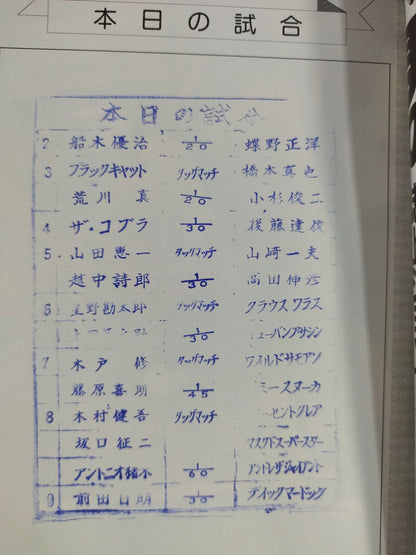 本日の試合
本日の試合
2 船木優治 1/20 蝶野正洋
3 ブラックキャット タッグマッチ 橋本真也
荒川 真 1/20 小杉俊二
4 ザ・コブラ 1/30 後藤達俊
5. 山田恵一 タッグマッチ 山崎一夫
越中詩郎 1/30 高田伸彦
6 星野勘太郎 タッグマッチ クラウス ワラス
1/30
7 木戸 修 タッグマッチ ワイルドサモアン
藤原喜明 1/45 ミースヌーカ
8 木村健吾 タッグマッチ セントクレア
坂口征二 マスクドスーパースター
アントニオ猪木 1/60 アンドレザジャイアント
9 前田日明 1/30 ディックマードック